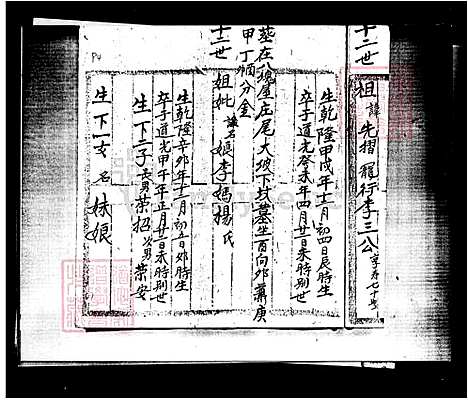 十二世
祖 諱 先摺 龍行李三公 享寿七十
生乾隆甲戌年十一月初四日辰時生
卒于道光癸未年四月廿一日未時別世
墓在八塊厝庄尾大坡下坟墓坐酉向卯兼庚
甲丁酉分金
十二世 祖妣 諱名 娘李媽楊氏
生乾隆辛卯年十二月初二日卯時生
卒于道光甲午年正月廿二日未時別世
生下二子 長男榮招 次男榮安
生下一女 名 妹娘